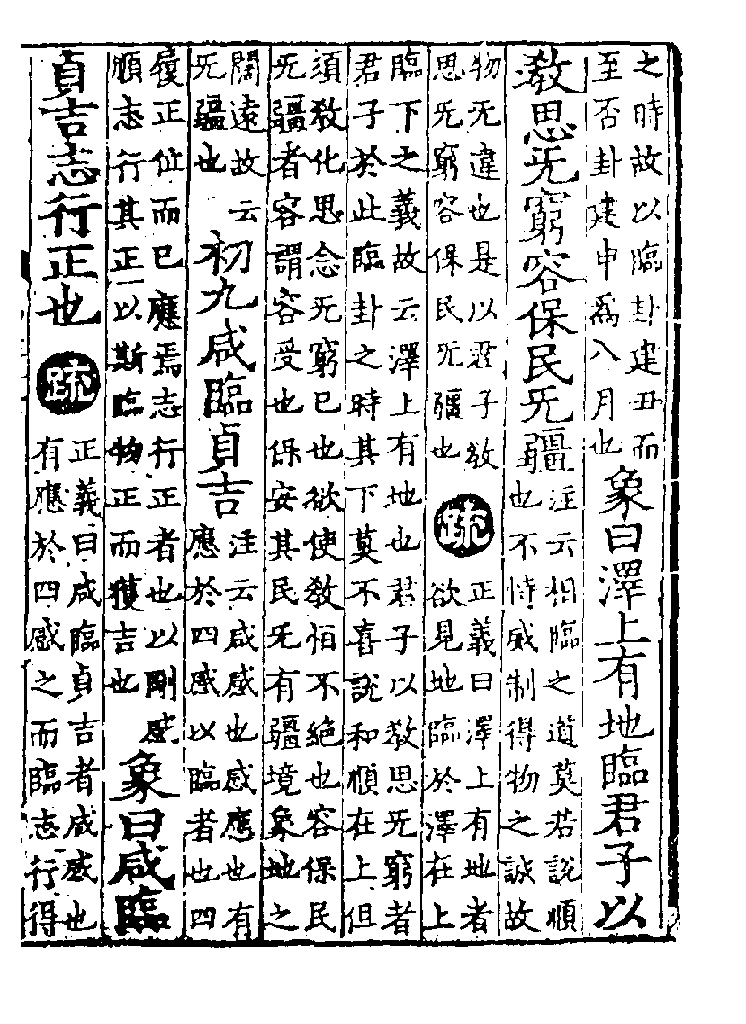 之時故以臨卦建丑而
至否卦建申為八月也
象曰澤上有地臨君子以
教思无窮容保民无疆
注云相臨之道莫若說順
也不恃威制得物之誠故
物无違也是以君子教
思无窮容保民无疆也
疏
正義曰澤上有地者
欲見地臨於澤在上
臨下之義故云澤上有地也君子以教思无窮者
君子於此臨卦之時其下莫不喜說和順在上但
須教化思念无窮已也欲使教恒不絕也容保民
无疆者容謂容受也保安其民无有疆境象地之
闊遠故云
无疆也
初九咸臨貞吉
注云咸感也感應也有
應於四感以臨者也四
履正位而已應焉志行正者也以剛感
順志行其正以斯臨物正而獲吉也
象曰咸臨
貞吉志行正也
疏
正義曰咸臨貞吉者咸感也
有應於四感之而臨志行得